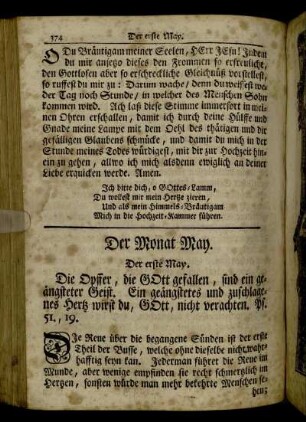 174 Der erste May.
O Du Bräutigam meiner Seelen, HErr JEsu! Indem
du mir anjetzo dieses den Frommen so erfreuliche,
den Gottlosen aber so erschreckliche Gleichnüß vorstellest,
so ruffest du mir zu: Darum wache/ denn du weissest we-
der Tag noch Stunde/ in welcher des Menschen Sohn
kommen wird. Ach laß diese Stimme immerfort in mei-
nen Ohren erschallen, damit ich durch deine Hülffe und
Gnade meine Lampe mit dem Oehl des thätigen und dir
gefälligen Glaubens schmücke, und damit du mich in der
Stunde meines Todes würdigest, mit dir zur Hochzeit hin-
ein zu gehen, allwo ich mich alsdenn ewiglich an deiner
Liebe erquicken werde. Amen.
Ich bitte dich, o GOttes-Lamm,
Du wollest mir mein Hertze zieren,
Und als mein Himmels-Bräutigam
Mich in die Hochzeit-Kammer führen.
Der Monat May.
Der erste May.
Die Opffer, die GOtt gefallen, sind ein ge-
ängsteter Geist. Ein geängstetes und zuschlage-
nes Hertz wirst du, GOtt, nicht verachten. Ps.
51, 19.
DJe Reue über die begangene Sünden ist der erste
Theil der Busse, welche ohne dieselbe nicht wahr-
hafftig seyn kan. Jederman führet die Reue im
Munde, aber wenige empfinden sie recht schmertzlich im
Hertzen, sonsten würde man mehr bekehrte Menschen se-
hen;